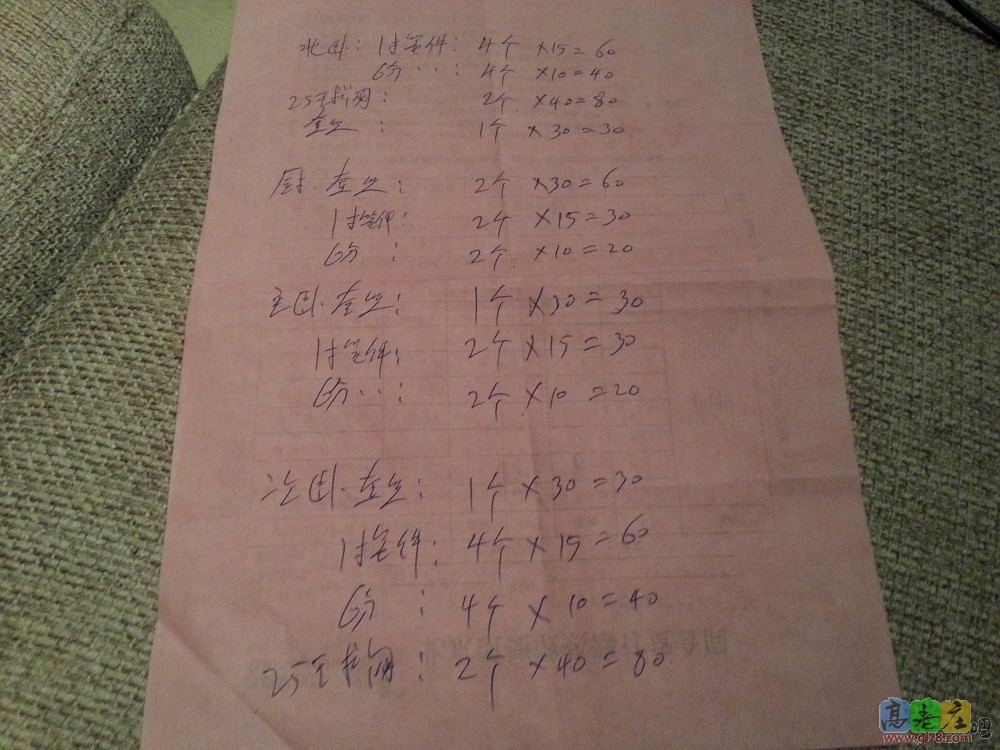 北卧：1寸管件：4个 ×15=60
6分‥‥：4个 ×10=40
25王求阀：2个 ×40=80
查以：1个 ×30=30
厨·查以：2个 ×30=60
1寸管件：2个 ×15=30
6分：2个 ×10=20
主卧·查以：1个 ×30=30
1寸管件：2个 ×15=30
6分‥：2个 ×10=20
次卧·查以：1个 ×30=30
1寸管件：4个 ×15=60
6分：4个 ×10=40
25王求阀：2个 ×40=80
高老庄
www.glz8.com